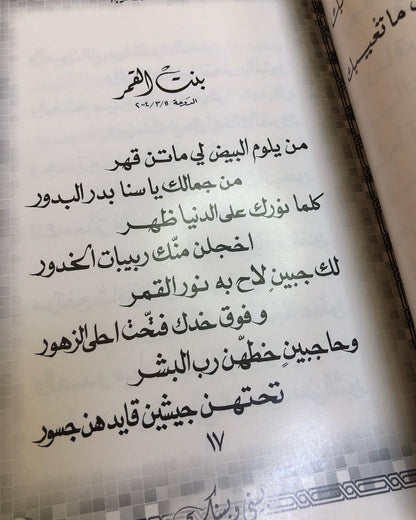 بنت القمر
الدوحة ١١/٣/٢٠٠٤
من يلوم البيض لي ماتن قهر
من جمالك يا سنا بدر البدور
كلما نورك على الدنيا ظهر
اخجلن منك ربيبات الخدور
لك جبينٍ لاح به نور القمر
وفوق خدك فتّحت احلى الزهور
وحاجبينٍ خطهّن رب البشر
تحتهن جيشين قايدهن جسور
١٧
بيني وبينك